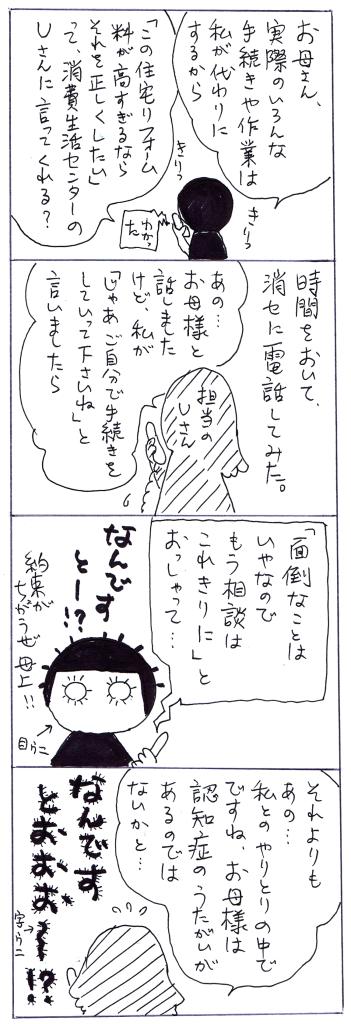 お母さん、
実際のいろんな
手続きや作業は
私が代わりに
するから
きりっ
きりっ
「この住宅リフォーム
料が高すぎるなら
それを正しくしたい」
って、消費生活センターの
Uさんに言ってくれる？
わかっ
た
時間をおいて、
消セに電話してみた。
担当の
Uさん
あの…
お母様と
話しました
けど、私が
「じゃあご自分で手続きを
していって下さいね」と
言いましたら
「面倒なことは
いやなので
もう相談は
これきりに」と
おっしゃって…
なんです
とー!?
約束が
ちがうぜ母上!!
目うに
それよりも
あの…
私とのやりとりの中で
ですね、お母様は
認知症のうたがいが
あるのでは
ないかと…
なんです
とおぉおー!?
字うに